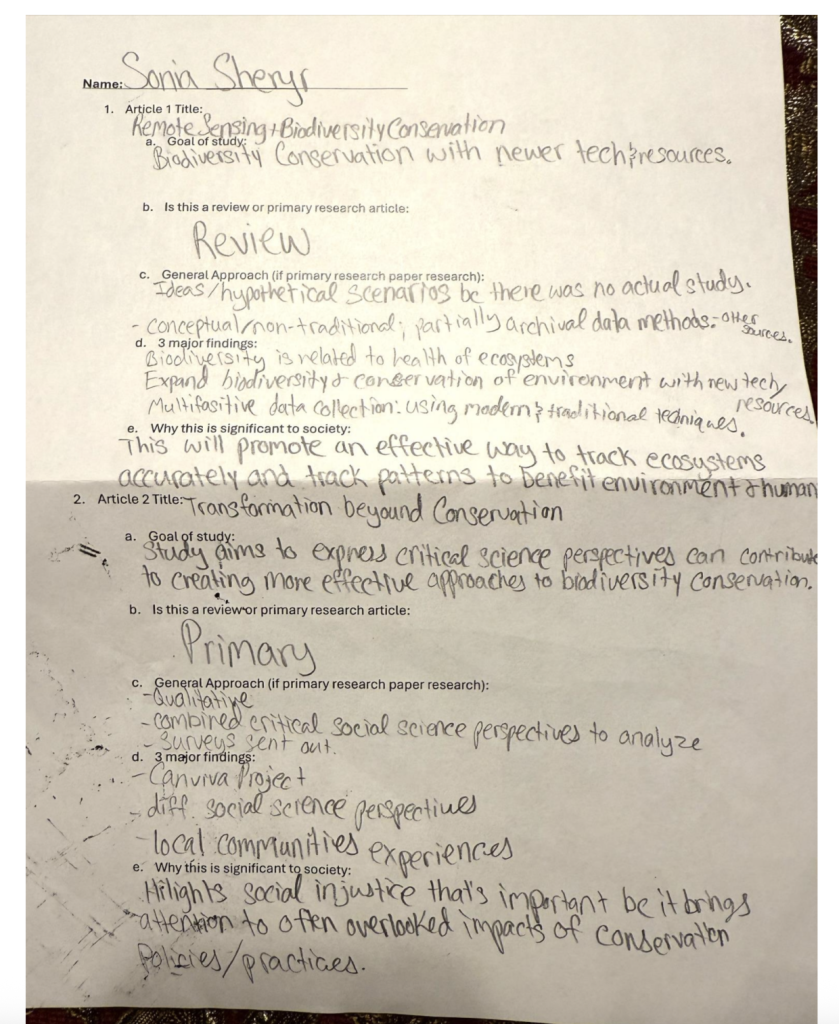 Name: Sonia Sheryr
1. Article 1 Title:
Remote Sensing + Biodiversity Conservation
a. Goal of study:
Biadiversity Conservation with newer tech & resources.
b. Is this a review or primary research article:
Review
c. General Approach (if primary research paper research):
Ideas/hypothetical scenarios bc there was no actual study.
- conceptual/non-traditional; partially archival data methods.- other sources.
d. 3 major findings:
Biodiversity is related to health of ecosystems
Expand biodiversity & conservation of environment with new tech/
resources.
Multifasitive data collection: using modern & traditional techniques.
e. Why this is significant to society:
This will promote an effective way to track ecosystems
accurately and track patterns to benefit environment & human
2. Article 2 Title: Transformation beyound Conservation
a. Goal of study:
Study aims to express critical science perspectives can contribute
to creating more effective approaches to biodiversity conservation.
b. Is this a review or primary research article:
Primary
c. General Approach (if primary research paper research):
-Qualitative
-combined critical social science perspectives to analyze
- surveys sent out.
d. 3 major findings:
- Canviva Project
- diff. social science perspectives
- local communities experiences
e. Why this is significant to society:
Hilights social injustice that's important bc it brings
attention to often overlooked impacts of conservation
Policies/practices.